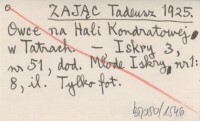 ZAJĄC Tadeusz 1925.
Owce na Hali Kondratowej
w Tatrach. — Iskry 3,
nr 51, dod. Młode Iskry, nr 1:
8, il. Tylko fot.